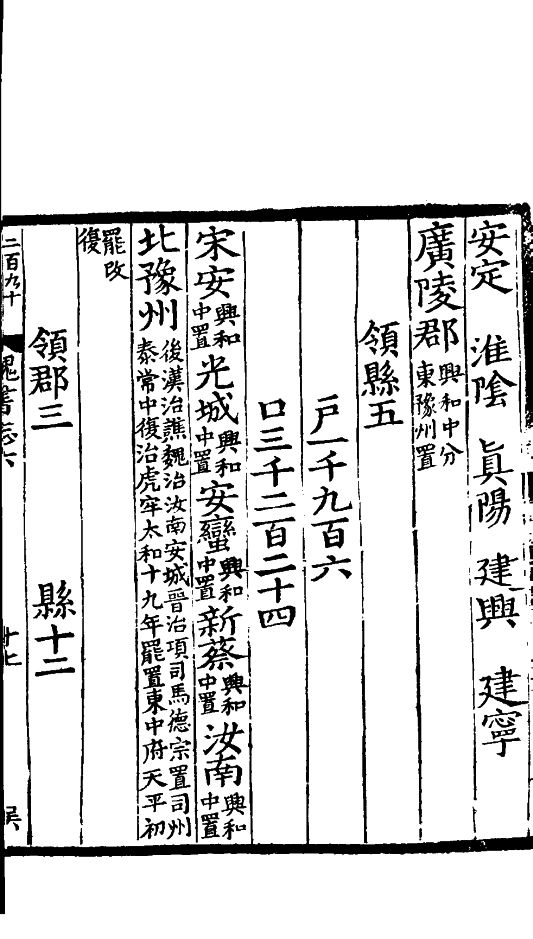 安定　淮陰　眞陽　建興　建寧
廣陵郡興和中分東豫州置
領縣五
戸一千九百六
口三千二百二十四
宋安興和中置光城興和中置安蠻興和中置新蔡興和中置汝南興和中置
北豫州後漢治譙魏治汝南安城晉治項司馬德宗置司州泰常中復治虎牢太和十九年罷置東中府天平初
罷改復
領郡三　縣十二
二百九十　魏書志六　十七　吳